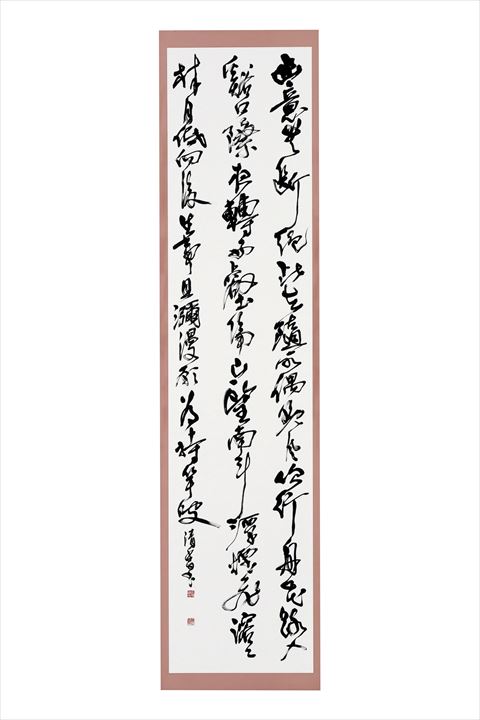 幽意無斷絕此去隨所偶晚風吹行舟花路入
谿口際夜轉西壑隔山望南斗潭煙飛溶々
林月低向後生事且瀰漫願為持竿叟